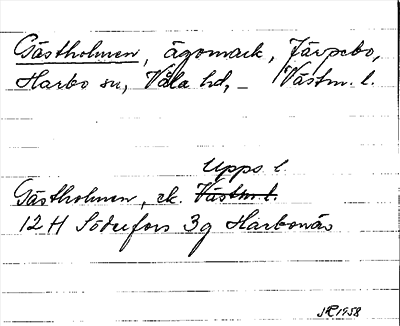 Gästholmen, ägomark, Järpebo,
Harbo sn, Våla hd, – Västm. l.
Upps l.
Gästholmen, ek. Västm l.
12 H Söderfors 3g Harbonäs
1958